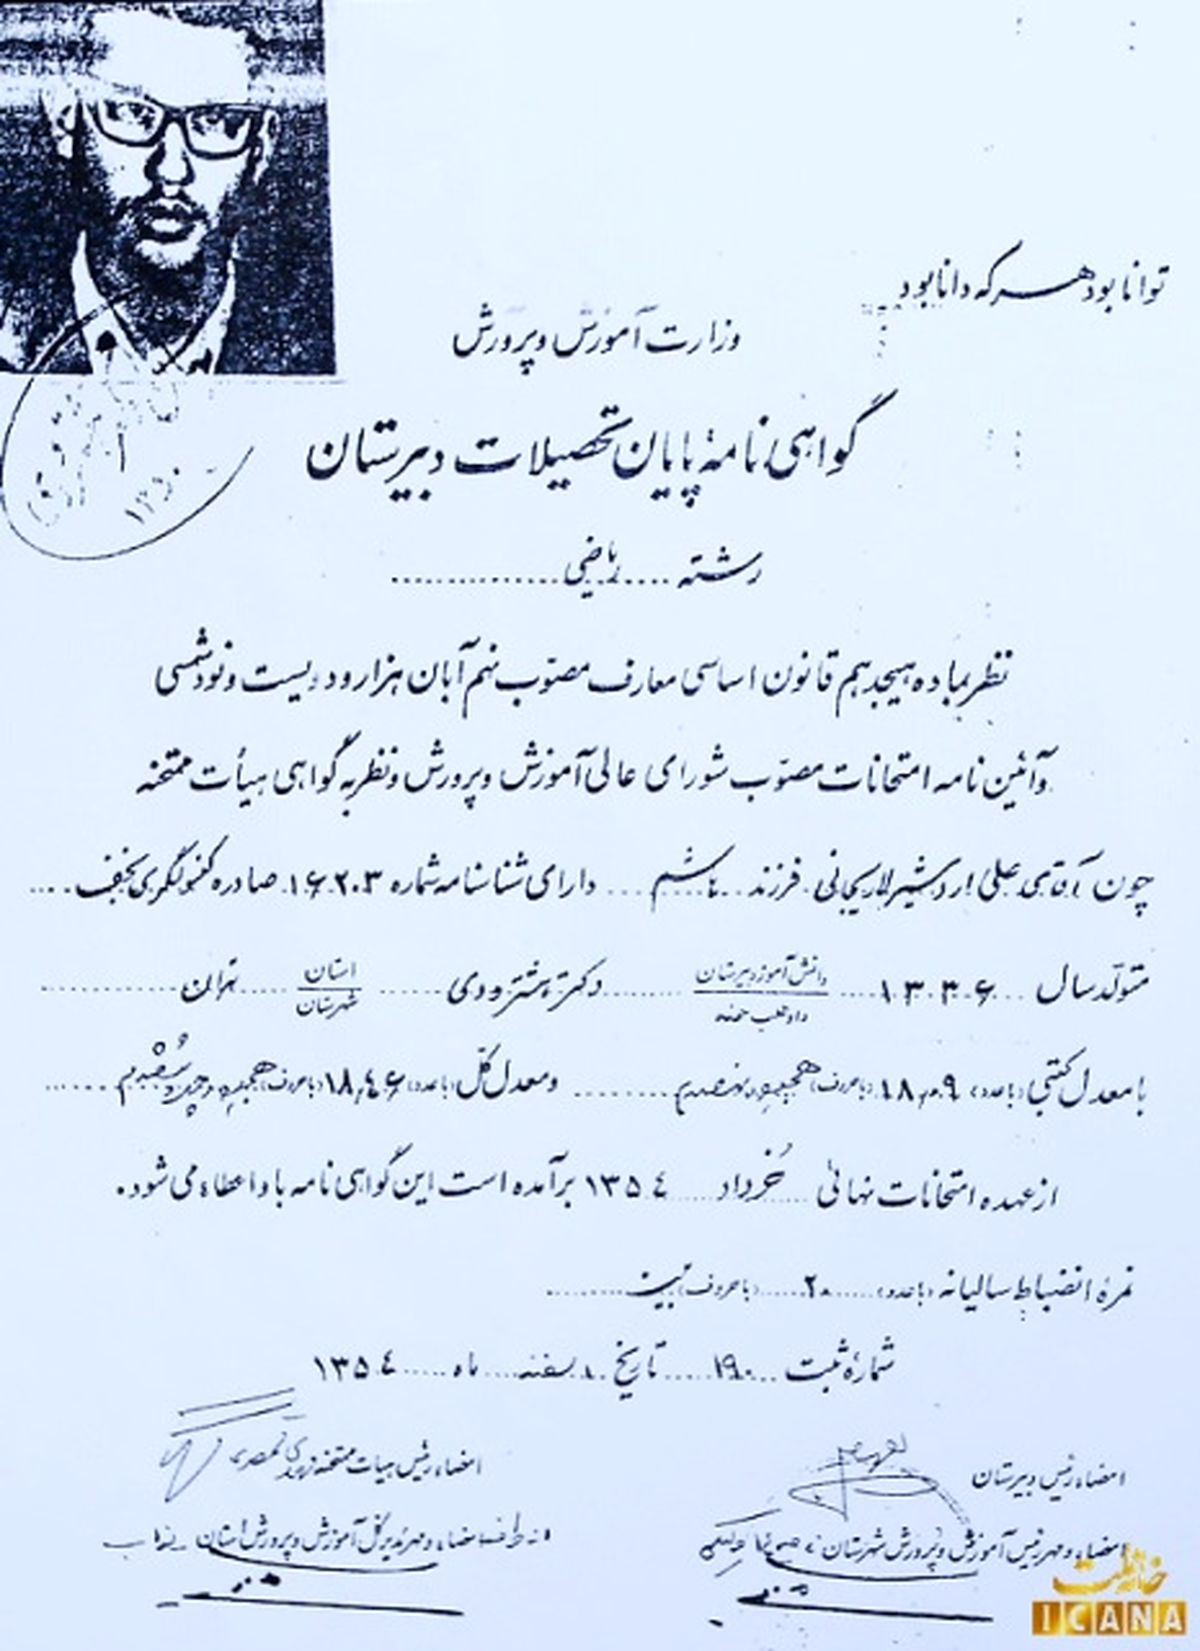 توانا بود هر که دانا بود
وزارت آموزش و پرورش
گواهی نامهٔ پایان تحصیلات دبیرستان
رشته ..... ریاضی ..........
نظر بماده هیجدهم قانون اساسی معارف مصوّب نهم آبان هزار و دویست و نود شمسی
و آئین نامه امتحانات مصوّب شورای عالی آموزش و پرورش و نظر به گواهی هیأت ممتحنه
چون آقای علی اردشیر لاریجانی فرزند هاشم دارای شناسنامه شماره ۱۶۲۰۳ صادره کنسولگری نجف
متولّد سال ۱۳۳۶ دانش آموز دبیرستان داوطلب متفرقه دکتر هشترودی استان شهرستان تهران
با معدل کتبی (با عدد) ۱۸,۰۹ (با حروف) هیجده و نه صدم و معدل کل (با عدد) ۱۸,۴۶ (با حروف) هیجده و چهل و شش صدم
از عهده امتحانات نهائی خرداد ۱۳۵٤ برآمده است این گواهی نامه باو اعطاء می شود.
نمرهٔ انضباط سالیانه (با عدد) ۲۰ (با حروف) بیست
شمارهٔ ثبت ۱۹۰ تاریخ اسفند ماه ۱۳۵٤
امضاء رئیس دبیرستان
امضاء رئیس هیأت ممتحنه
امضاء و مهر رئیس آموزش و پرورش شهرستان
از طرف امضاء و مهر مدیر کل آموزش و پرورش استان
خانه ملت
ICANA